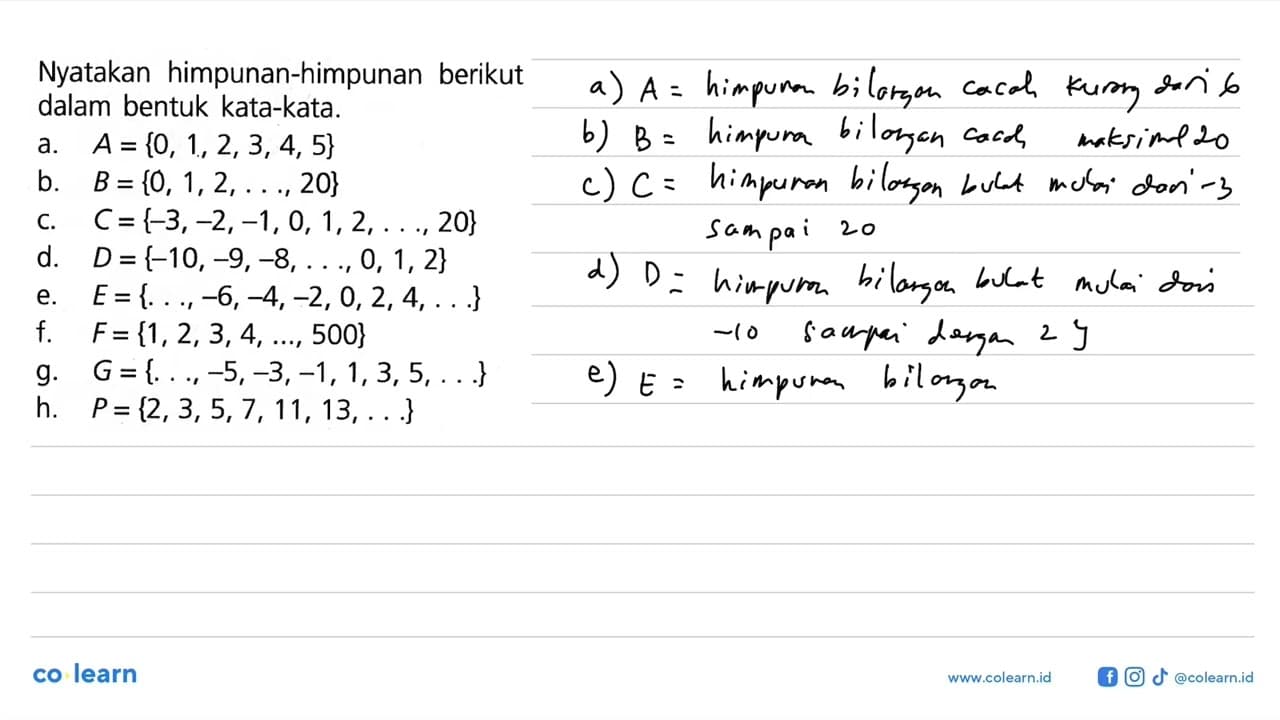 Nyatakan himpunan-himpunan berikut
dalam bentuk kata-kata.
a. A = {0, 1, 2, 3, 4, 5}
b. B = {0, 1, 2, . . ., 20}
c. C = {–3, –2, –1, 0, 1, 2, . . ., 20}
d. D = {–10, –9, –8, . . ., 0, 1, 2}
e. E = {. . ., –6, –4, –2, 0, 2, 4, . . .}
f. F = {1, 2, 3, 4, ..., 500}
g. G = {. . ., –5, –3, –1, 1, 3, 5, . . .}
h. P = {2, 3, 5, 7, 11, 13, . . .}
a) A = himpunan bilangan cacah kurang dari 6
b) B = himpunan bilangan cacah maksimal 20
c) C = himpunan bilangan bulat mulai dari -3
sampai 20
d) D = himpunan bilangan bulat mulai dari
-10 sampai dengan 2 y
e) E = himpunan bilangan
co learn
www.colearn.id
@colearn.id